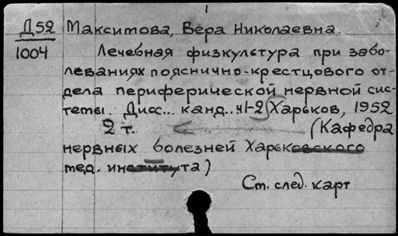 Д52 Максимова, Вера Николаевна.
1004 Лечебная физкультура при забо-
леваниях пояснично-крестцового от-
дела периферической нервной сис-
темы. Дисс... канд.. ч1-2 (Харьков, 1952
2 т. (Кафедра
нервных болезней Харьковского
мед. института)
См. след. карт